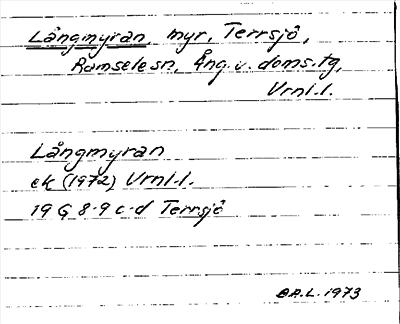 Långmyran, myr, Terrsjö,
Ramsele sn, Ång. v. doms.tg,
Vrnl.l.
Långmyran
ek (1972) Vrnl.l.
19 G 8-9 c-d Terrsjö
B.A.L. 1973